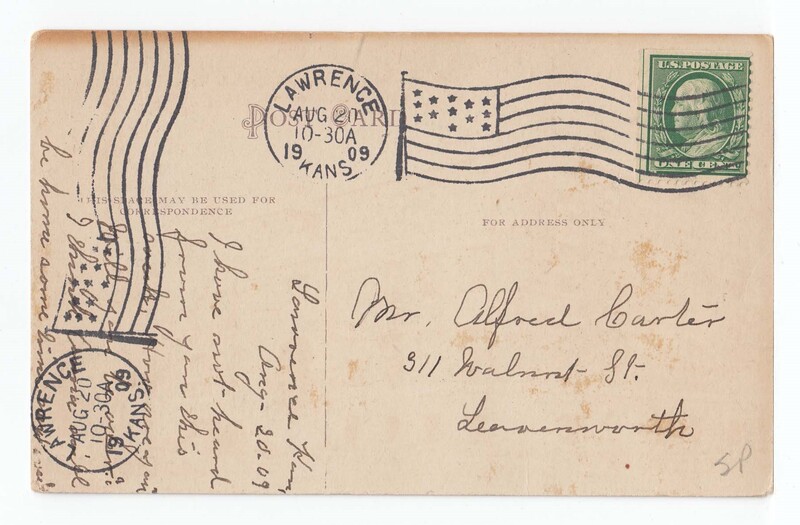 POST CARD
LAWRENCE
AUG 20
10-30A
1909
KANS.
U.S. POSTAGE
ONE CENT
THIS SPACE MAY BE USED FOR
CORRESPONDENCE
FOR ADDRESS ONLY
Mr. Alfred Carter
311 Walnut St.
Leavenworth
SP
Lawrence Kan,
Aug-20-09
I have not heard
from you this
week. How
Will
I think
be home some time
LAWRENCE
AUG 20
10-30A
1909
KANS.